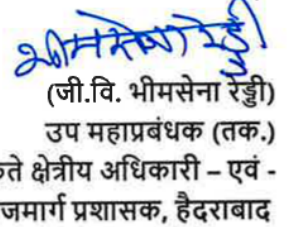 भीमसेना रेड्डी
(जी.वि. भीमसेना रेड्डी)
उप महाप्रबंधक (तक.)
क्षेत्रीय अधिकारी – एवं -
प्रशासक, हैदराबाद